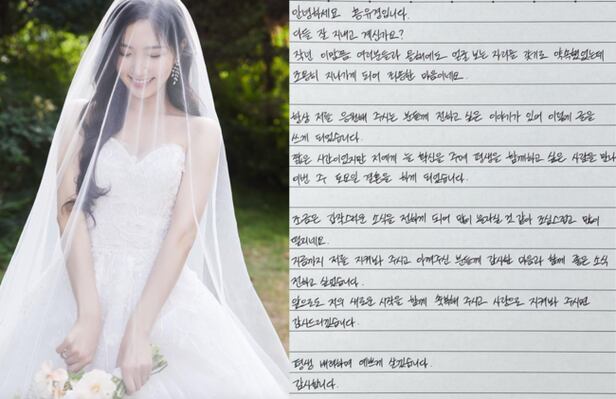 안녕하세요 홍유경입니다.
다들 잘 지내고 계신가요?
작년 이맘쯤 여러분들과 올해에도 얼굴 보는 자리를 갖기로 약속했었는데
조용히 지나가게 되어 죄송한 마음이네요.
항상 저를 응원해 주시는 분들께 전하고 싶은 이야기가 있어 이렇게 글을
쓰게 되었습니다.
짧은 시간이었지만 저에게 큰 확신을 주며 평생을 함께하고 싶은 사람을 만나
이번 주 토요일 결혼을 하게 되었습니다.
조금은 갑작스러운 소식을 전하게 되어 많이 놀라실 것 같아 조심스럽고 많이
떨리네요.
지금까지 저를 지켜봐 주시고 아껴주신 분들께 감사한 마음과 함께 좋은 소식
전하고 싶었습니다.
앞으로도 저의 새로운 시작을 함께 축복해 주시고 사랑으로 지켜봐 주시면
감사드리겠습니다.
평생 배려하며 예쁘게 살겠습니다.
감사합니다.